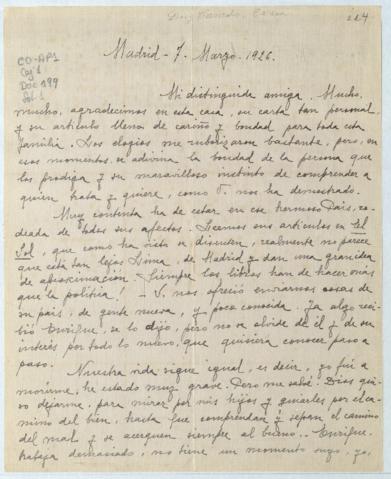 224
CO-AP1
Caj 1
Doc 199
Madrid - 7. Marzo, 1926.
Mi distinguida amiga. Mucho,
mucho, agradecimos en esta casa, su carta tan personal
y su articulo lleno de cariño y bondad para toda esta
familia. Los elogios me ruborizaron bastante, pero, en
esos momentos se adivina la bondad de la persona que
los prodiga y su maravilloso instinto de comprender a
quien trata y quiere, como V. nos ha demostrado.
Muy contenta ha de estar en ese hermoso Pais, ro-
deada de todos sus afectos. Leemos sus articulos en El
Sol, que como ha visto se discuten, realmente no parece
que está tan lejos Lima, de Madrid y dan una gran idea
de aproximacion. ¡Siempre los libros han de hacer más
que la politica! - V. nos ofreció enviarnos cosas de
su pais, de gente nueva, y poco conocida. Ya algo reci-
bió Enrique, se lo dijo, pero no se olvide de él y de su
interés por todo lo nuevo, que quisiera conocer paso a
paso.
Nuestra vida sigue igual, es decir, yo fui a
morirme, he estado muy grave. Pero me salvé. Dios qui-
so dejarme, para mirar por mis hijos y guiarles por el ca-
mino del bien, hasta que comprendan y sepan el camino
del mal y se acerquen siempre al bueno.. Enrique
trabaja demasiado, no tiene un momento suyo, yo,